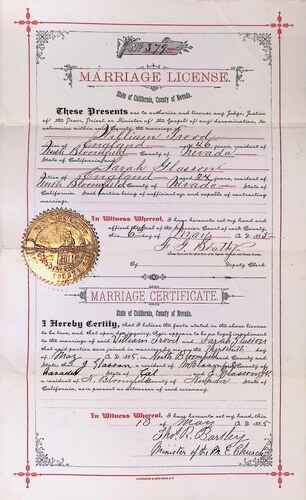 No 379
MARRIAGE LICENSE.
State of California, County of Nevada.
These Presents are to authorize and license any Judge, Justice
of the Peace, Priest, or Minister of the Gospel of any denomination, to
solemnize within said County, the marriage of
William Trood
Native of England aged 46 years, resident of
North Bloomfield County of Nevada
State of California and
Sarah Glasson
Native of England aged 24 years, resident of
North Bloomfield County of Nevada State of
California. Said parties being of sufficient age and capable of contracting
marriage.
In Witness Whereof, I have hereunto set my hand and
affixed the Seal of the Superior Court of said County,
this 6 day of May A.D. 1885
By Deputy Clerk.
MARRIAGE CERTIFICATE.
State of California, County of Nevada.
I Hereby Certify, that I believe the facts stated in the above license
to be true, and that upon due there appears to be no legal impediment
to the marriage of said William Trood and Sarah Glasson
that said parties were joined in marriage by me on the Thirteenth day
of May A.D. 1885, in North Bloomfield County and
State; that J Glasson, a resident of County of
Nevada State of Cal and J Glasson
a resident of N. Bloomfield County of Nevada State of
California, were present as witness of said ceremony.
In Witness Whereof, I have hereunto set my hand, this
13 of May A.D. 1885
Thos. R. Bartley
Minister of the M. E. Church